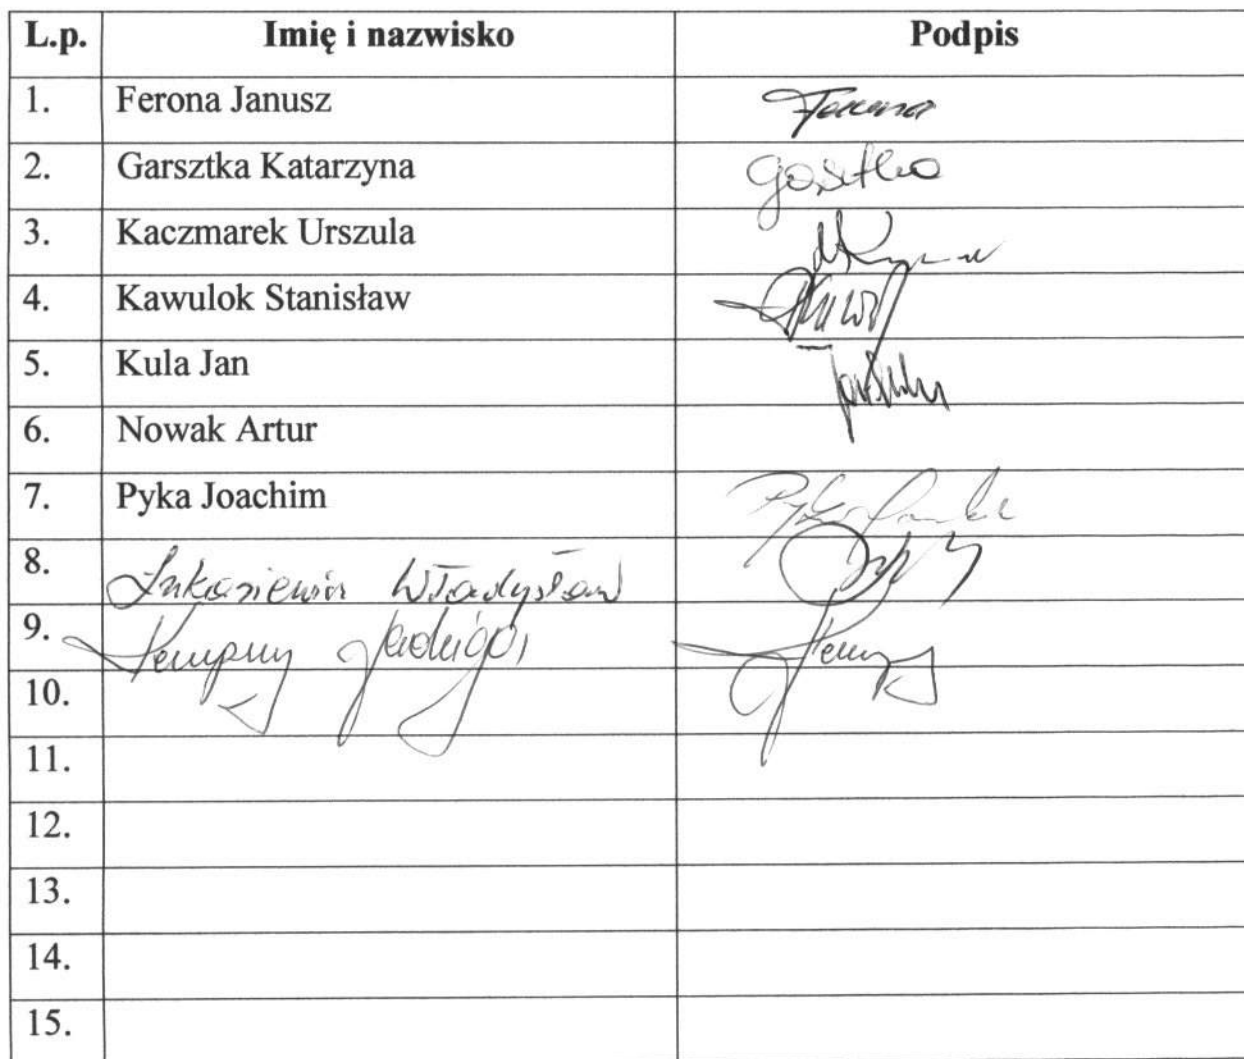 L.p. Imię i nazwisko Podpis
1. Ferona Janusz Ferona
2. Garsztka Katarzyna
3. Kaczmarek Urszula
4. Kawulok Stanisław
5. Kula Jan
6. Nowak Artur
7. Pyka Joachim
8. Łukasiewicz Władysław
9. Kempny Jadwiga
10.
11.
12.
13.
14.
15.